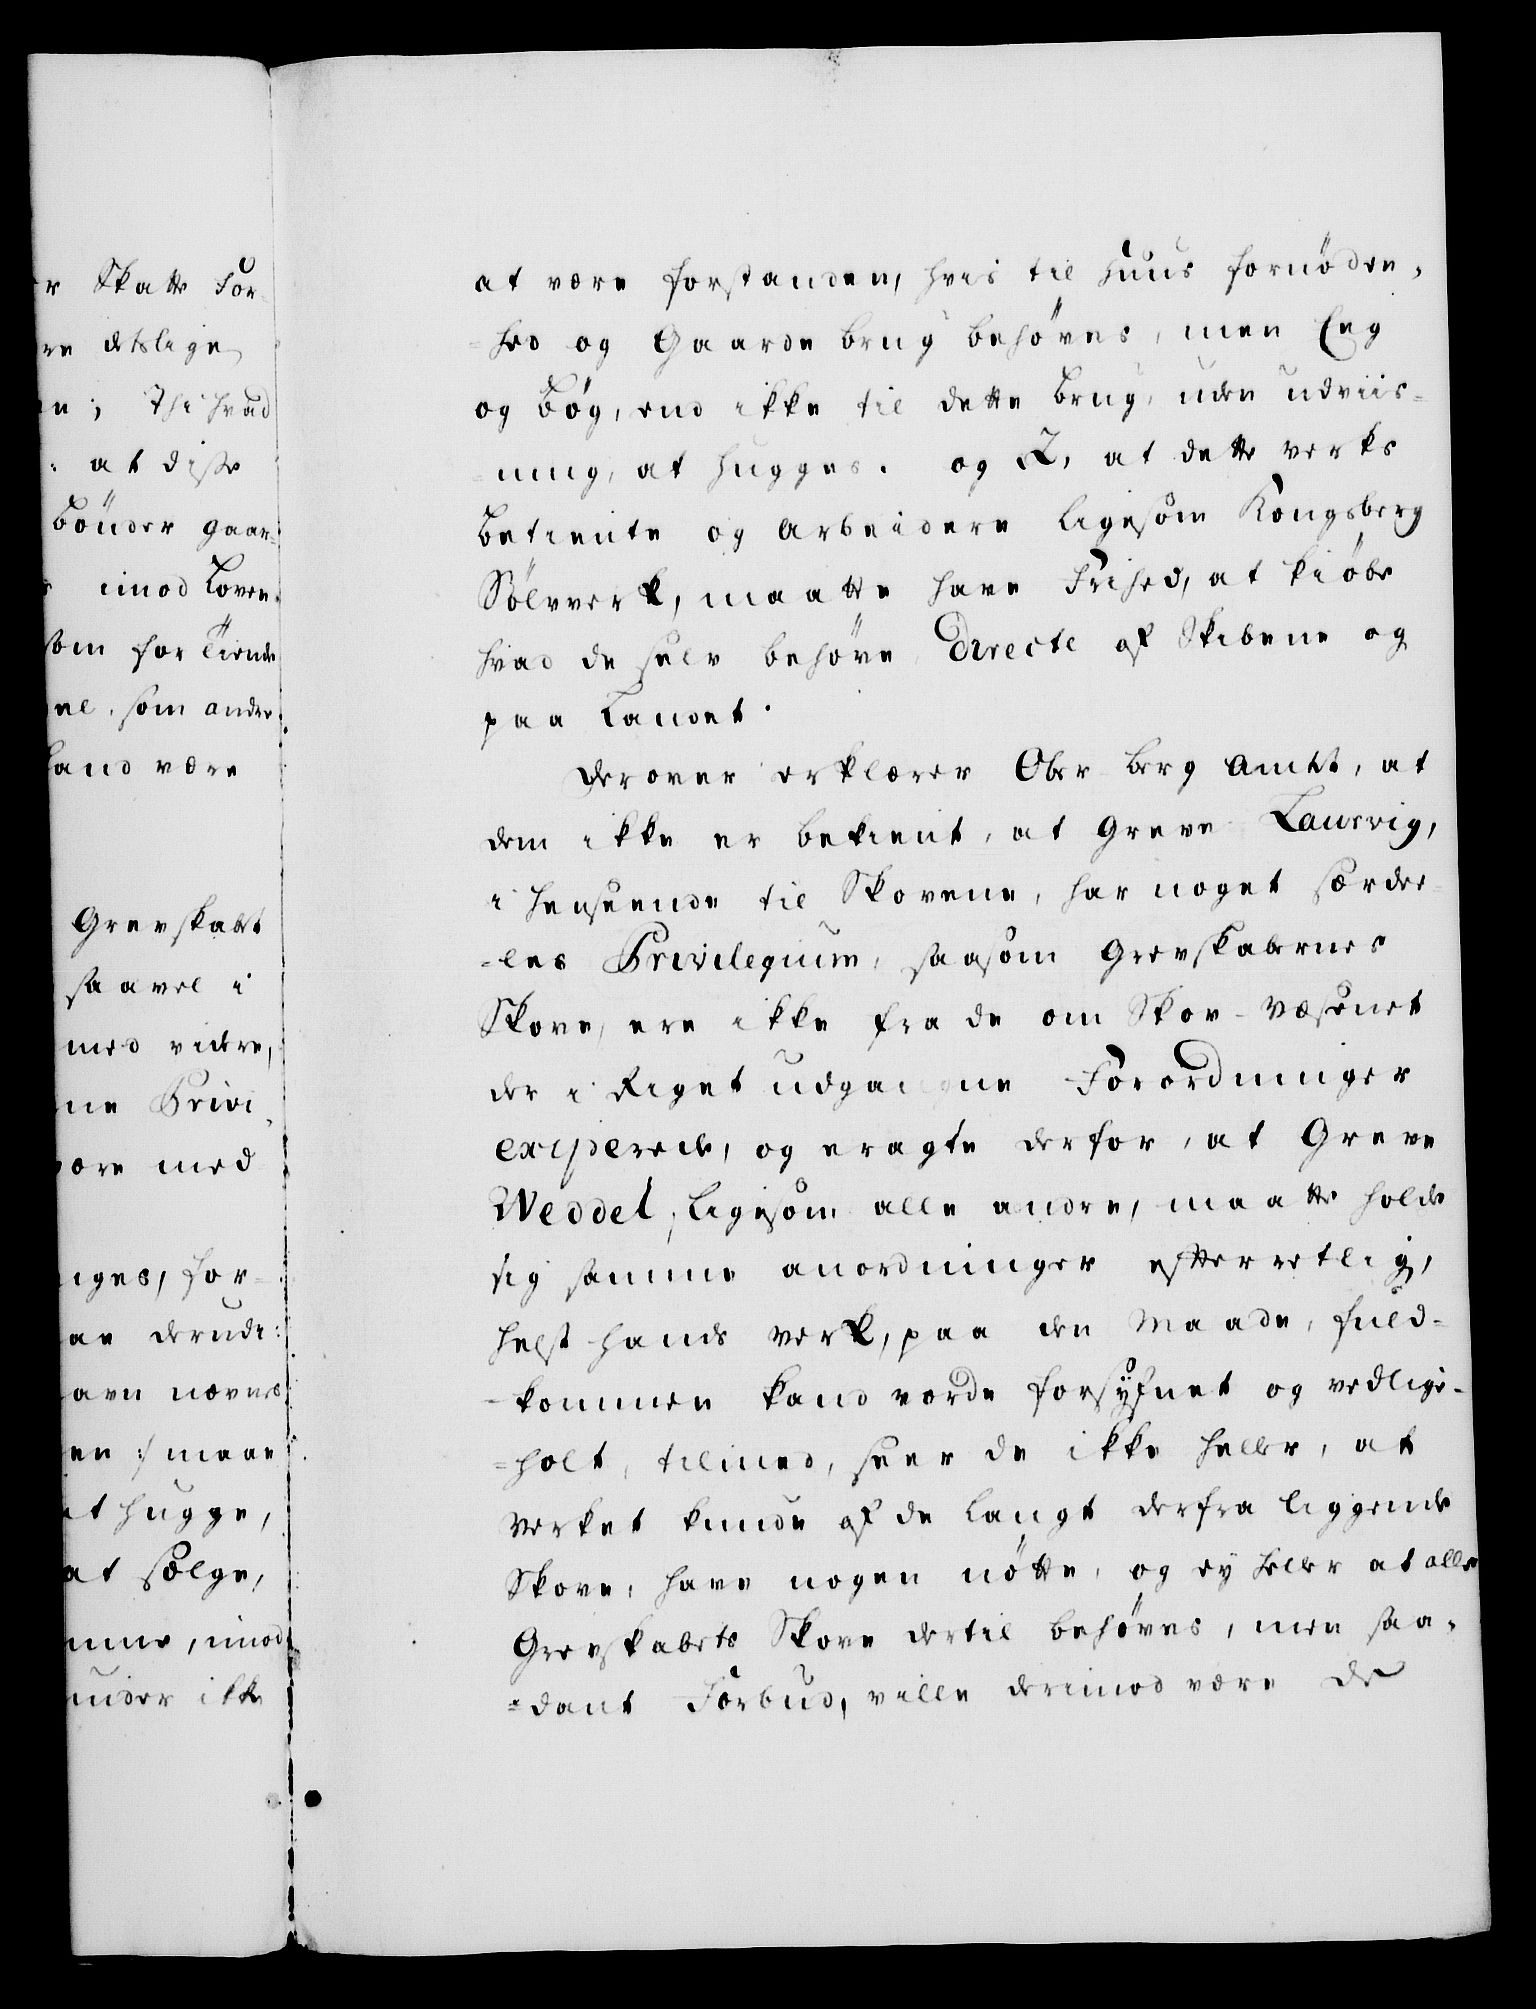 r Skatte For-
re detslige
en; Thi hvad
: at disse
Bönder gaar-
imod Loven.
som for Tiende
el, som andre
Land være
Grevskabet
saavel i
med videre,
ne Privi
være med
iges, for-
ae derudi:
avn nævnes
en :/ maae
at hugge,
at sælge,
imod
under ikke
at være forstanden, hvis til Huus fornöden-
-hed og Gaarde brug behöves, men Eeg
og Bög, end ikke til dette Brug, uden udviis-
-ning, at hugges. og 2, at dette verks
Betiente og Arbeidere ligesom Kongsberg
Sölvverk, maatte have Frihed, at kiöbe
hvad de selv behöve Directe af Skibene og
paa Landet.
Derover erklærer Ober-Berg Amtet, at
dem ikke er bekient, at Greve Laurvig,
i henseende til Skovene, har noget særdee-
-les Privilegium, saasom Grevskabernes
Skove, ere ikke fra de om Skov-Væsenet
der i Riget udgangne Forordninger
exciperede, og eragte derfor, at Greve
Weddel, ligesom alle andre, maatte holde
sig samme anordninger efterretlig,
helst hands verk, paa den Maade, fuld-
-kommen kand vorde forsÿfnet og vedlige-
-holt, tilmed, seer de ikke heller, at
Verket kunde af de langt derfra liggende
Skove, have nogen nötte, og ey heller at alle
Grevskabets Skove dertil behöves, men saa-
-dant Forbud, ville derimod være de